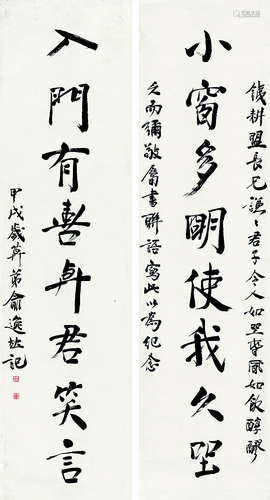 鐵耕盟長兄謙〻君子令人如坐春風如飲醇醪
小窗多明使我久坐
久而彌敬屬書聯語寫此以為紀念
入門有喜與君笑言
甲戌歲莫弟俞逸記